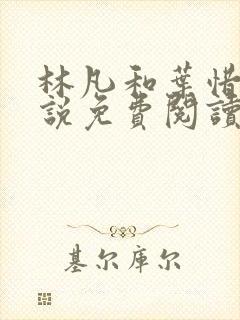 林凡和葉惜
說免費閱讀
基尔库尔